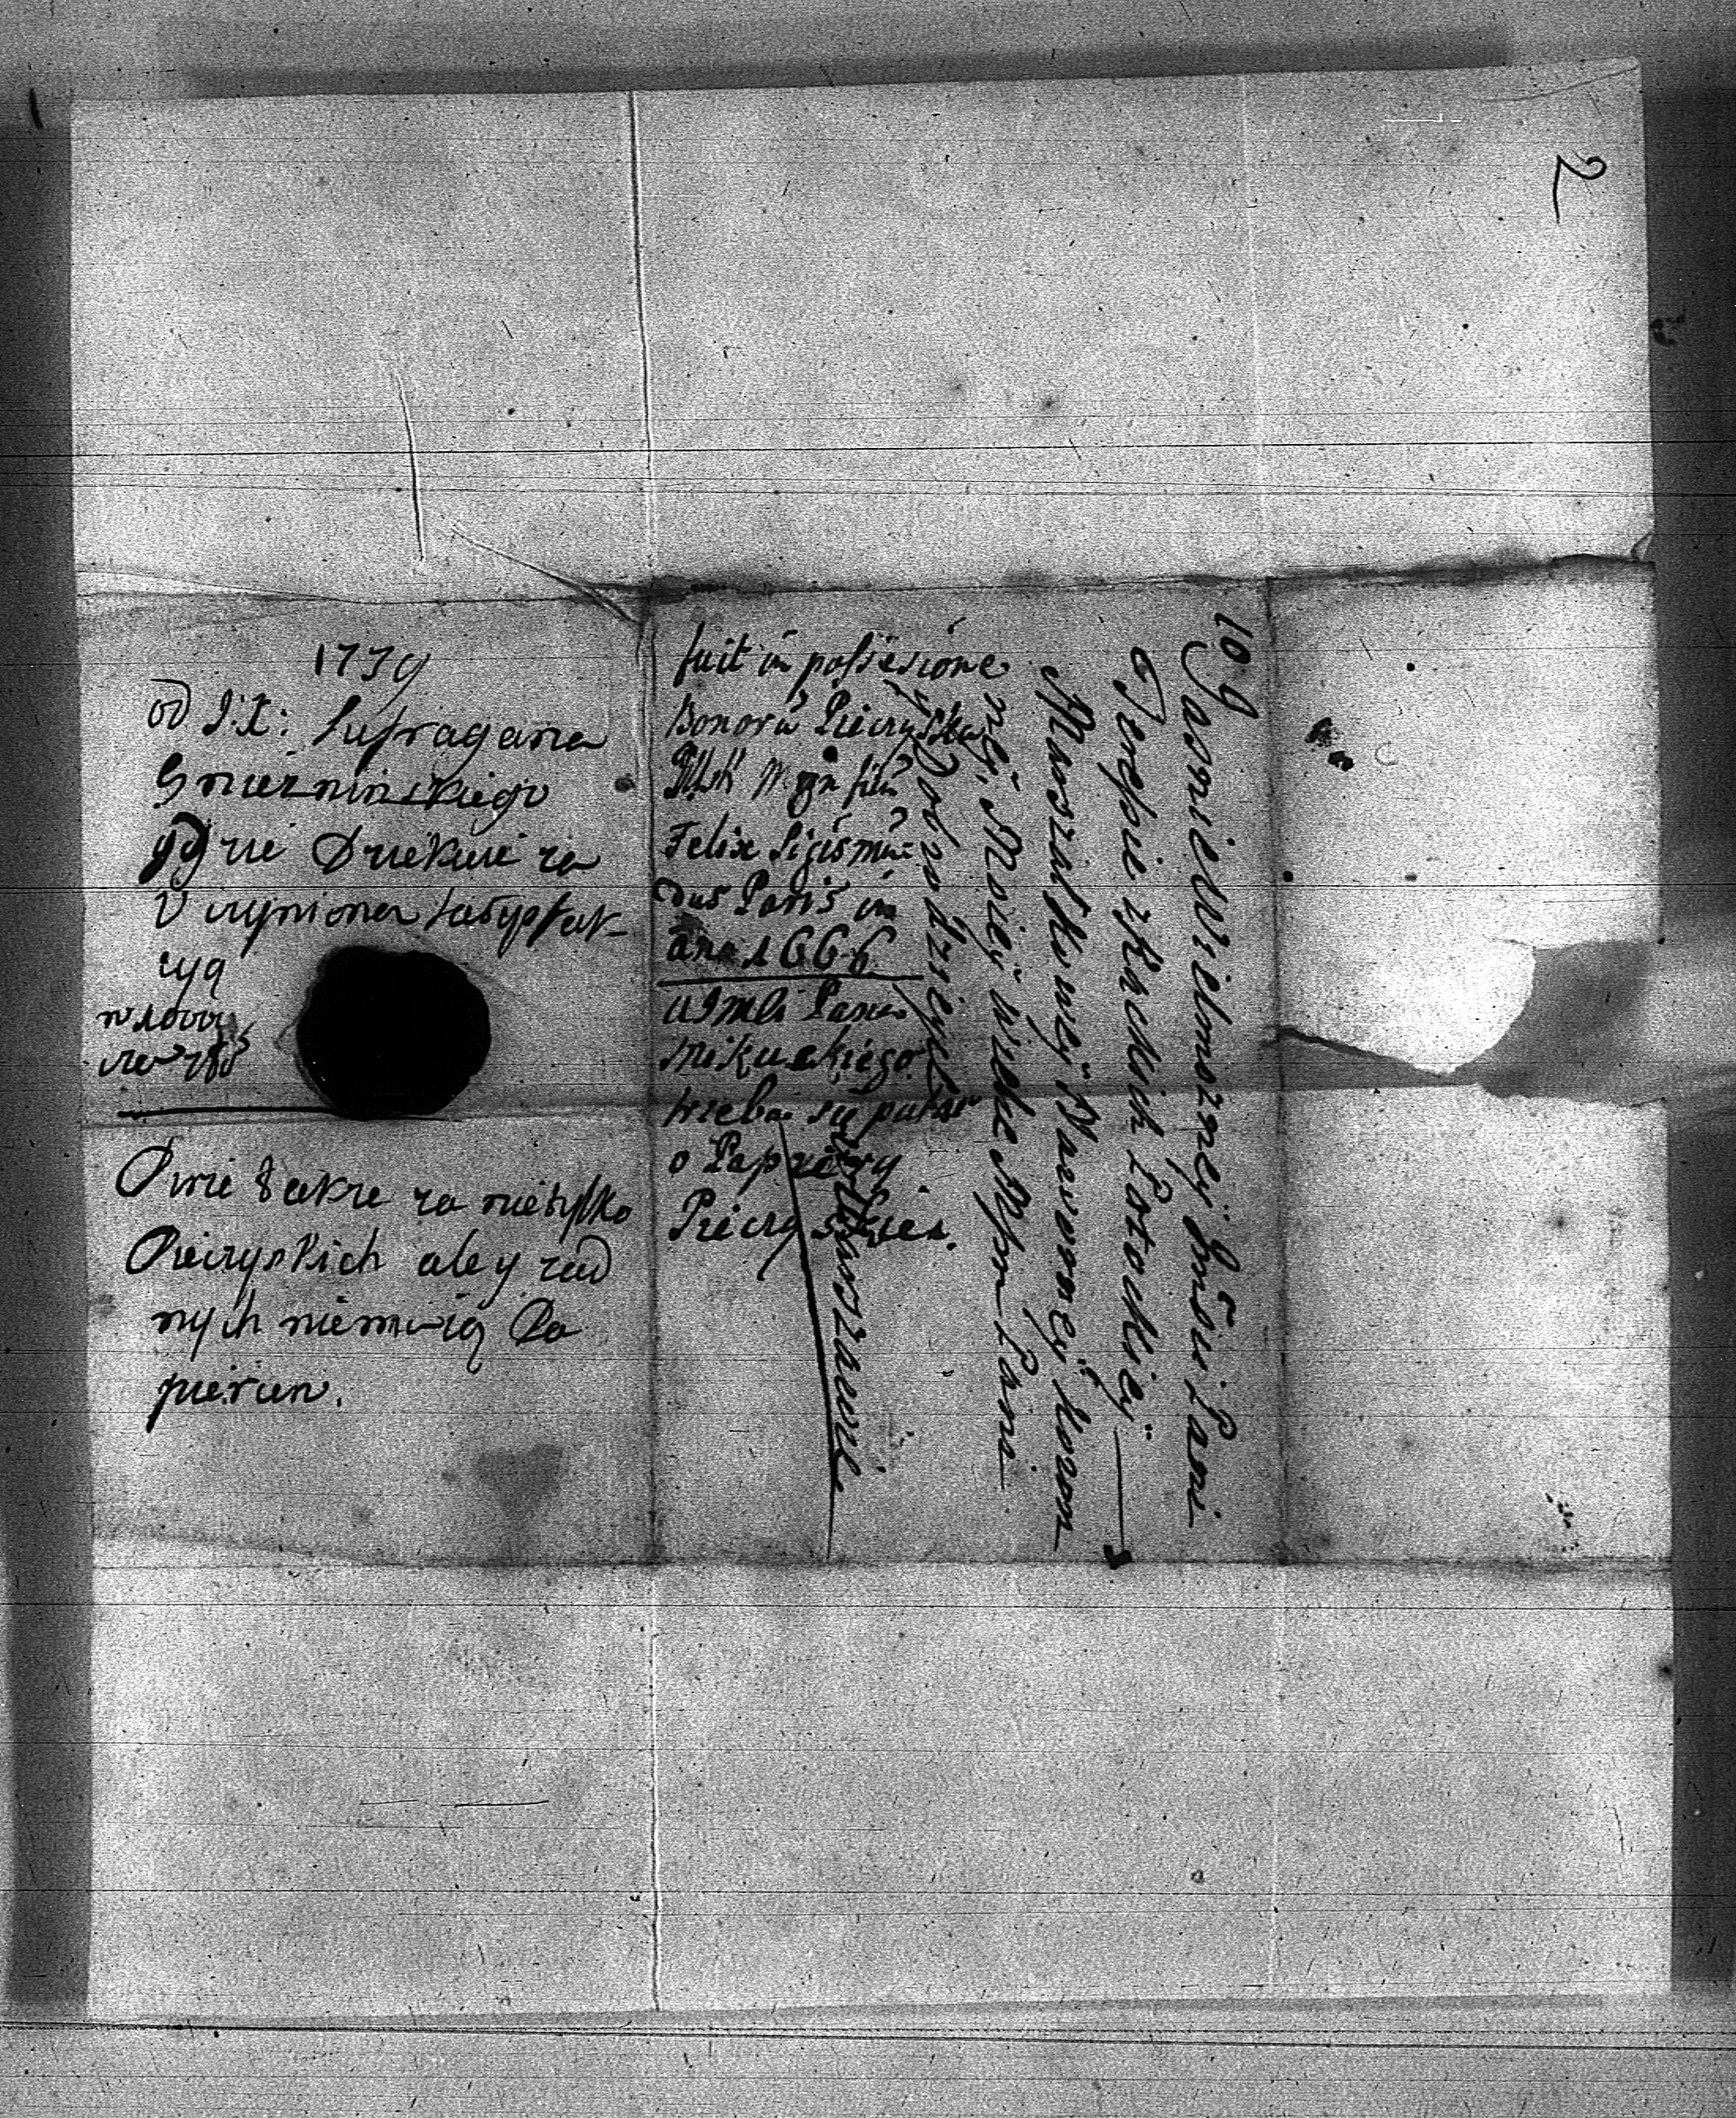 2
1739
od J: X: Sufragana
Gniezninskiego
gdzie Dziekuie za
Uczyniona satysfak-
cyą
w 1000
Pisze takze za nietylko
Pieczyskich ale y zad
nych niemaią Pa
pierien.
fuit in possesione
Bonorũ Pieczyska
Felix Sigismũ-
dus Paris in
ano 1666
u JMCi Pana
Mikuckiego
trzeba się pytac
o Papiery
Pieczyskies.
109
Jasnie Wielmozney Jmści Pani
Teressie z Kąckich Potockiey
Marszałkowey Nadworney Koron
ney. Moiey wielce Mscv Pani
y Dobrodzieyce
w Warszawie